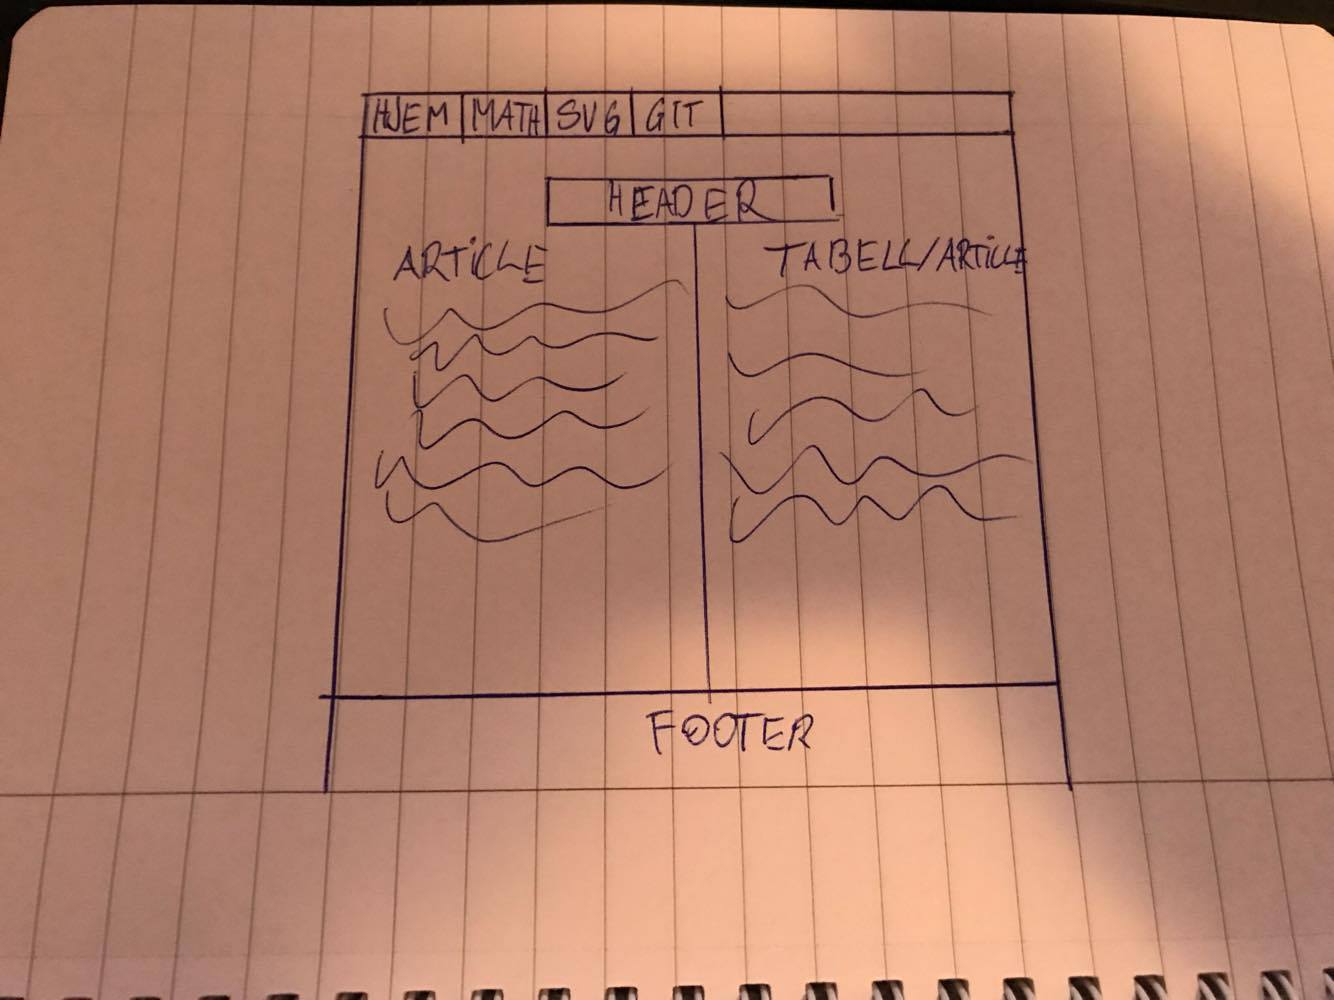 HJEM MATH SVG GIT
HEADER
ARTiCLE TABELL/ARTiCLE
FOOTER